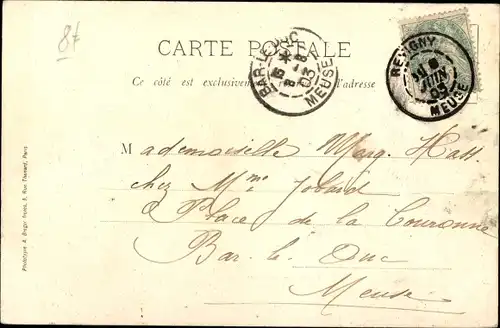 87
CARTE POSTALE
Ce côté est exclusivem
l'adresse
BAR-LE-DUC
8
03
MEUSE
REVIGNY
JUIN
03
MEUSE
Mademoiselle Marg. Hatt
chez Mme Jobard
Place de la Couronne
Bar-le-Duc
Meuse
Phototypie A. Breger frères, 9, Rue Thénard, Paris